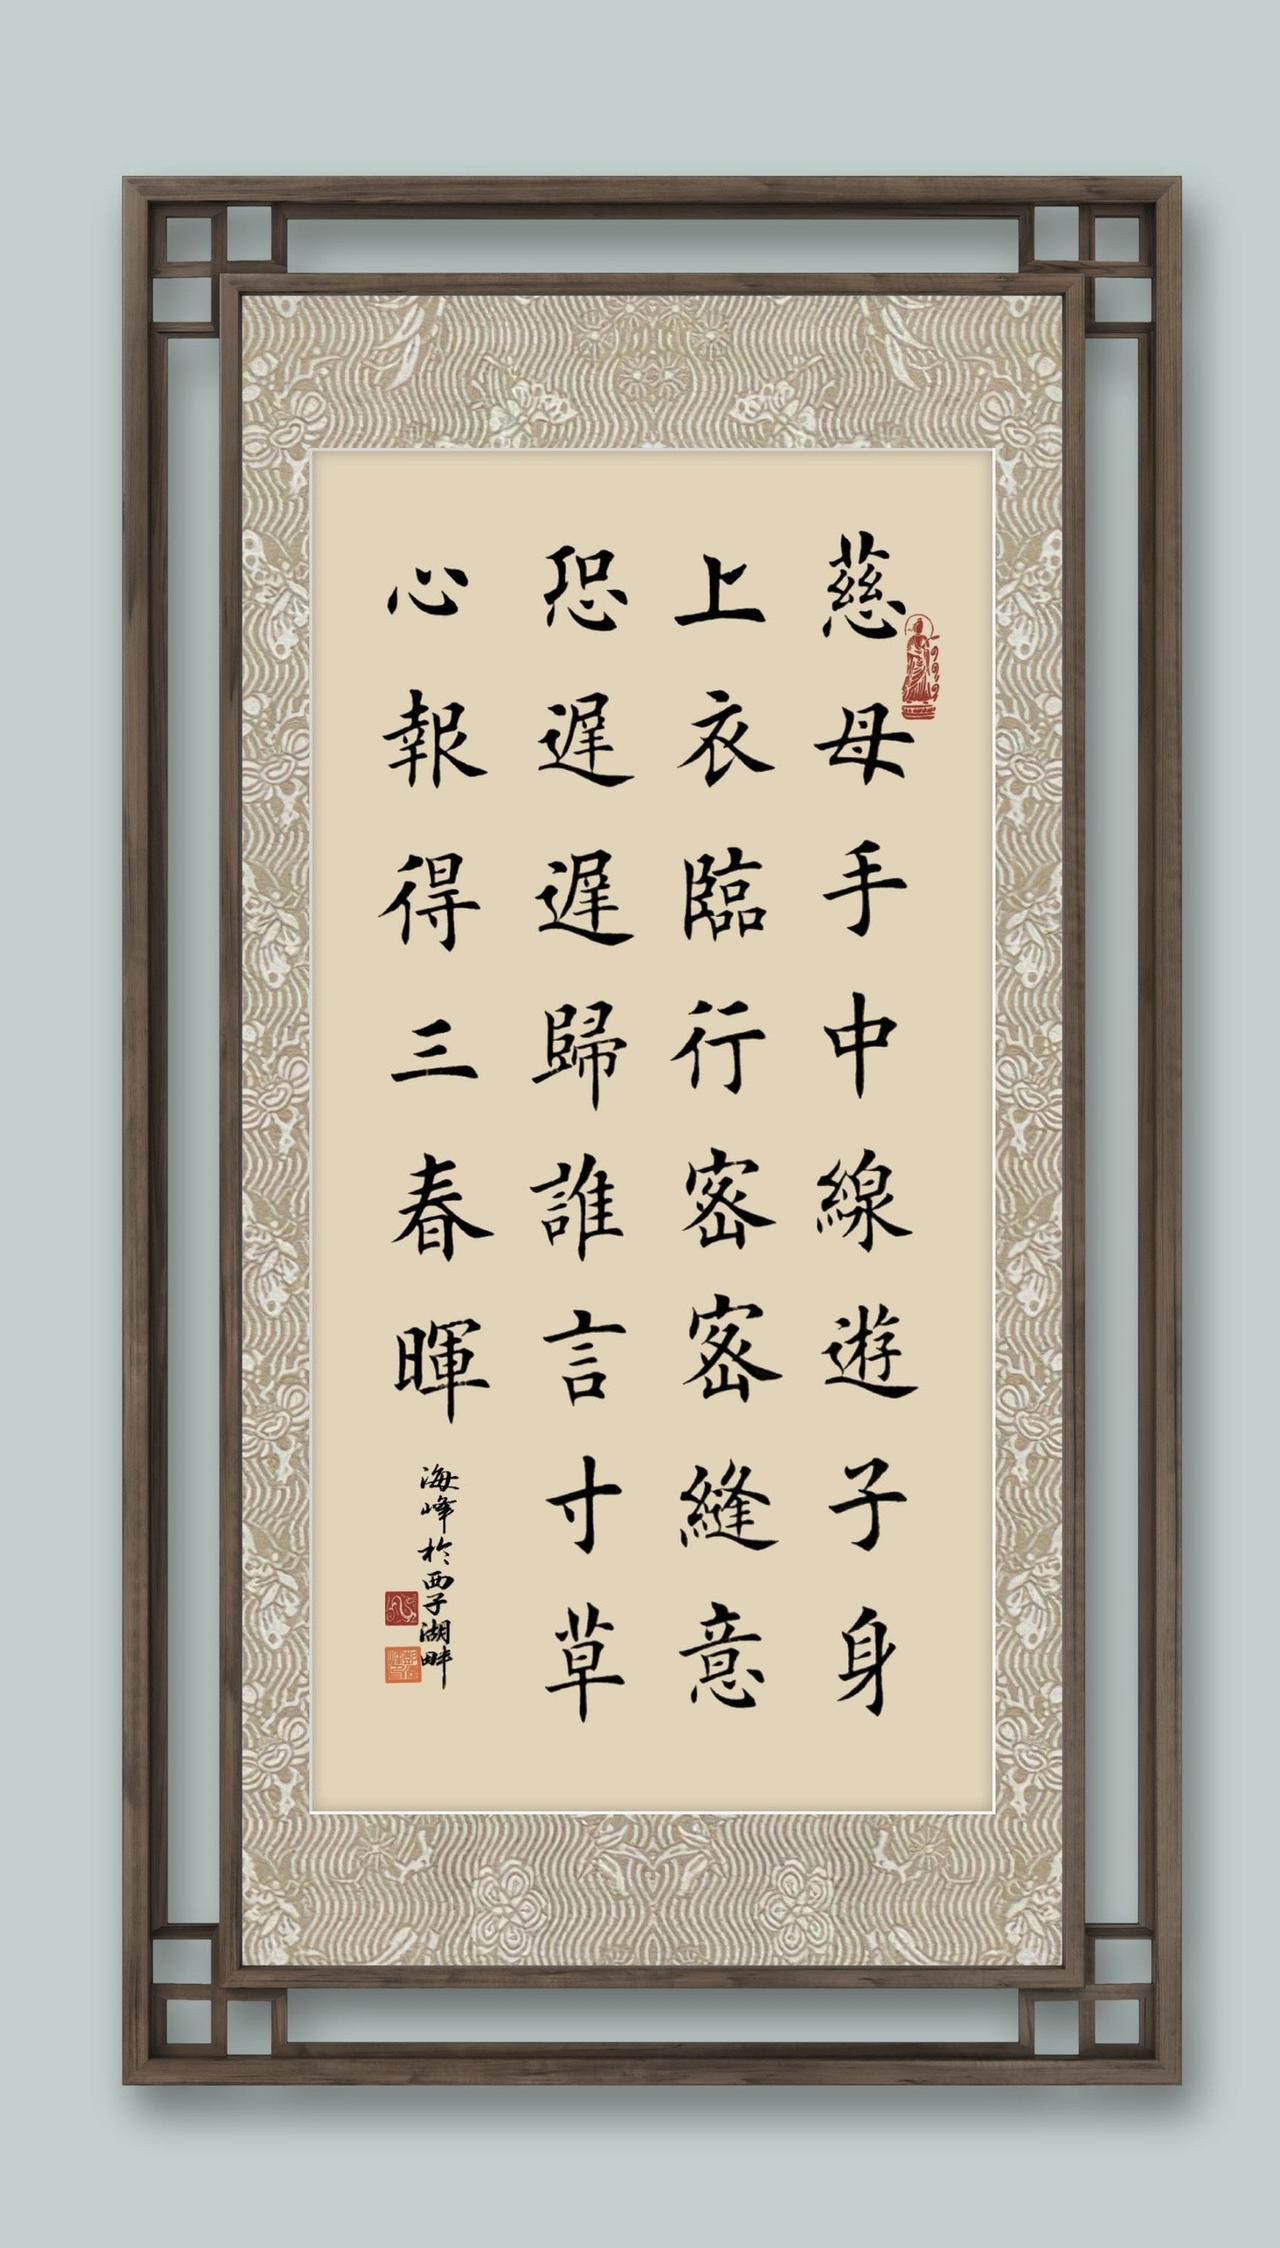 慈母手中線遊子身
上衣臨行密密縫意
恐遲遲歸誰言寸草
心報得三春暉
海峰於西子湖畔